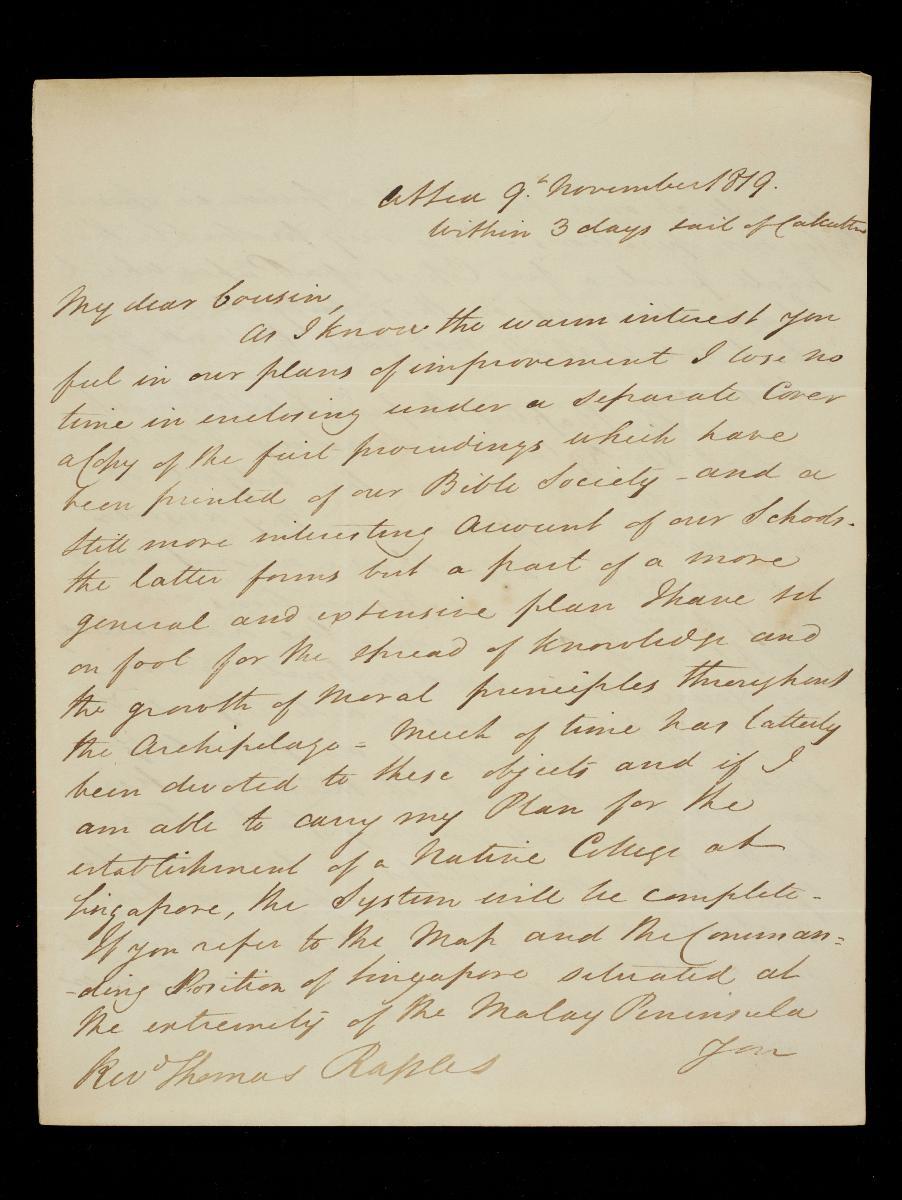 At Sea 9th November 1819.
Within 3 days sail of Calcutta
My dear Cousin,
As I know the warm interest you
feel in our plans of improvement I lose no
time in enclosing under a separate Cover
a Copy of the first proceedings which have
been printed of our Bible Society - and a
still more interesting account of our Schools.
the latter forms but a part of a more
general and extensive plan I have set
on foot for the spread of knowledge and
the growth of Moral principles throughout
the Archipelago = Much of time has latterly
been devoted to these objects and if I
am able to carry my Plan for the
establishment of a Native College at
Singapore, the System will be complete -
If you refer to the Map and the Comman=
-ding Position of Singapore situated at
the extremity of the Malay Peninsula
you
Revd Thomas Raffles